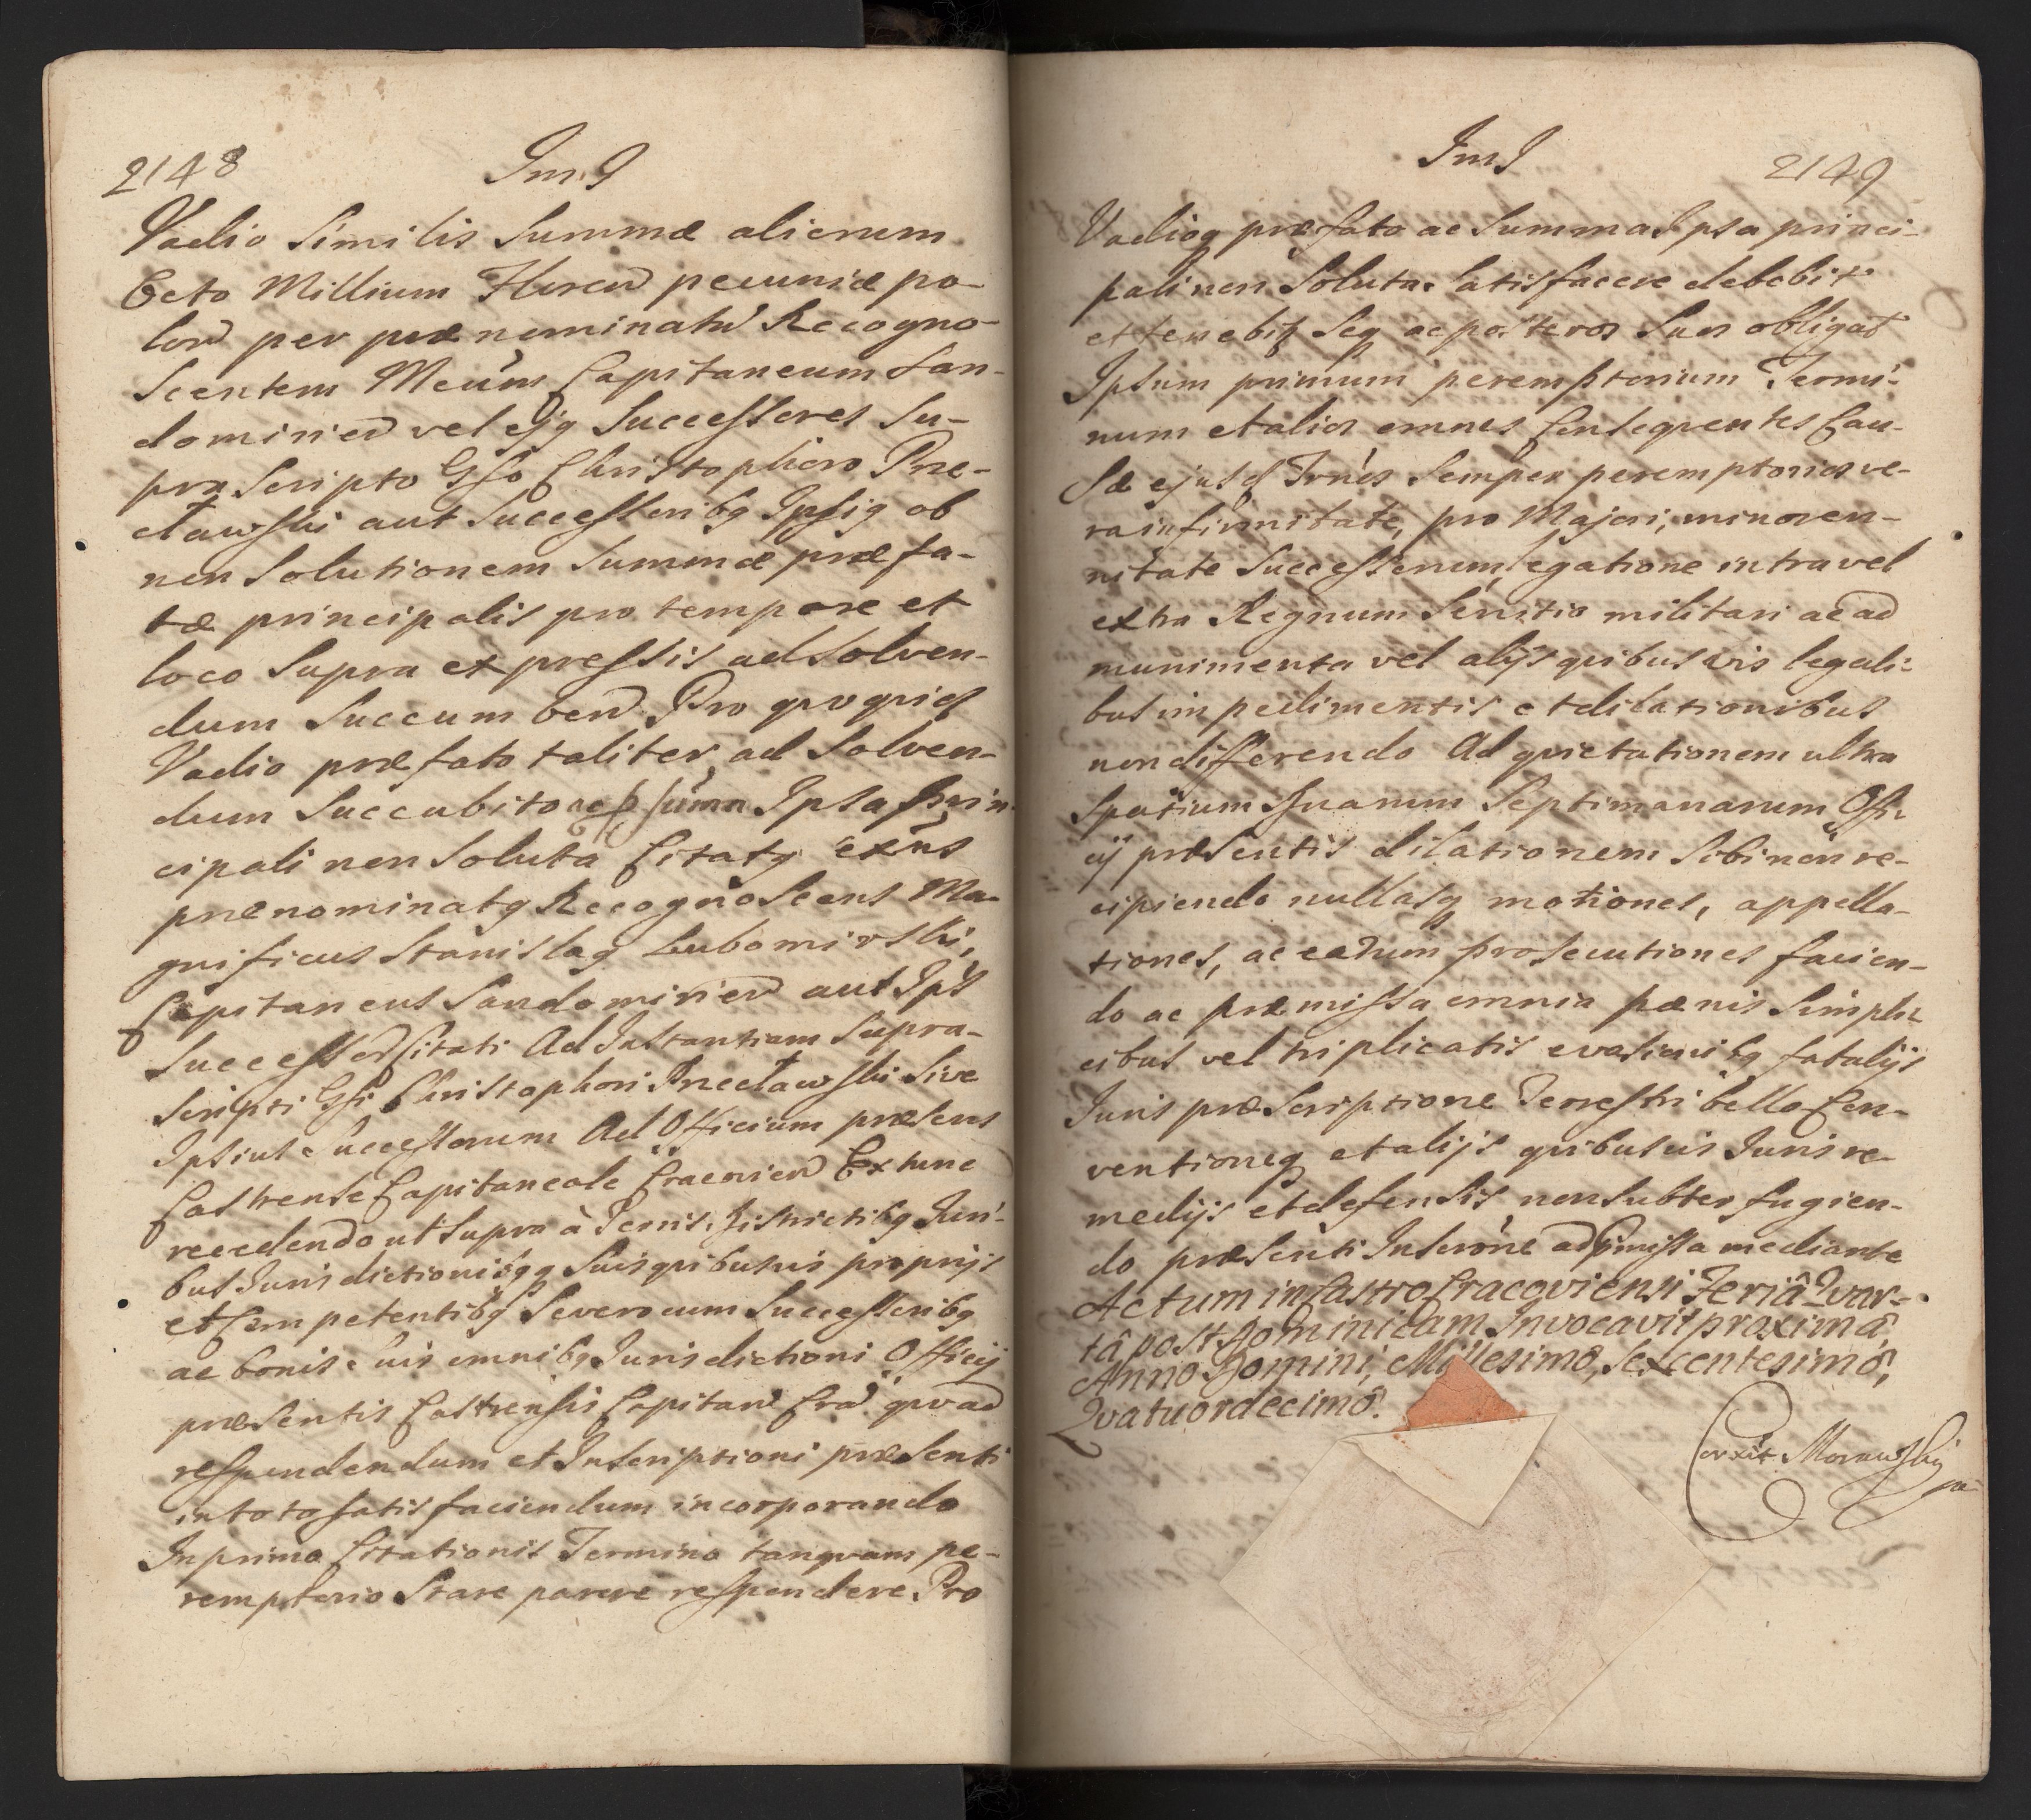 2148
Vadio Similis Summæ aliorum
Octo Millium Floren pecuniæ po-
lon per prænominatu Recogno-
scentem Meum Capitaneum San-
domirien vel ejq Successores Su-
pra Scripto Gso Christophoro Prze-
cławski aut Successoribq Ipsiq ob
non Solutionem Summæ præfa-
tæ principalis pro tempore et
loco Supra expressis ad Solven-
dum Succumben Pro quoquid
Vadio præfato taliter ad Solven-
dum Succubito ac Summa Ipsa Prin-
cipali non Soluta Citatq
prænominatq Recognoscens Ma-
gnificus Stanislaq Lubomirski,
Capitaneus Sandomirien aut Ips
Success Citati Ad Instantiam Supra-
scripti Gsi Christophori Przecławski Sive
Ipsius Successorum Ad Officium præsens
Castrense Capitaneale Cracovien Ex tunc
recedendo ut Supra à Terris, Districtibq Juri-
bus Jurisdictionibqq Suis quibusvis proprijs
et Competentibq Severo cum Successoribq
ac bonis Suis omnibq Jurisdictioni Officij
præsentis Castrensis Capitan Cra quo ad
respondendum et Inscriptioni præsenti
in toto satis faciendum incorporando
In primo Citationis Termino tanquam pe-
remptorio Stare parere respondere Pro
2149
Vadioq præfato ac Summa Ipsa princi-
pali non Soluta Satisfacere debebit
et tenebitq Seq ac posteros Suos obligat
Ipsum primum peremptorium Termi-
num et alios omnes Consequentes Cau-
sæ ejusd Trnos Semper peremptorios ve-
ra infirmitate, pro Majori, minoren-
nitate Successorum, legatione intra vel
extra Regnum Servitio militari ac ad
munimenta vel alijs quibus vis legali-
bus impedimentis et dilationibus
non differendo Ad quietationem ultra
Spatium Duarum Septimanarum Offi-
cij præsentis dilationem Sibi non re-
cipiendo nullasq motiones, appella-
tiones, ac earum prosecutiones facien-
do ac præmissa omnia pænis Simpli-
cibus vel triplicatis evasionibq fatalijs
Juris præscriptione Terrestri bello Con-
ventioneq et alijs quibusvis Juris re-
medijs et defensis non Subterfugien-
do præsenti Inscrone ad pmissa mediante
Actum in Castro Cracoviensi Feriâ Qvar-
tâ post Dominicam Invocavit proximâ
Anno Domini, Millesimô, Sexcentesimô,
Qvatuordecimô.
Corxit Morawski